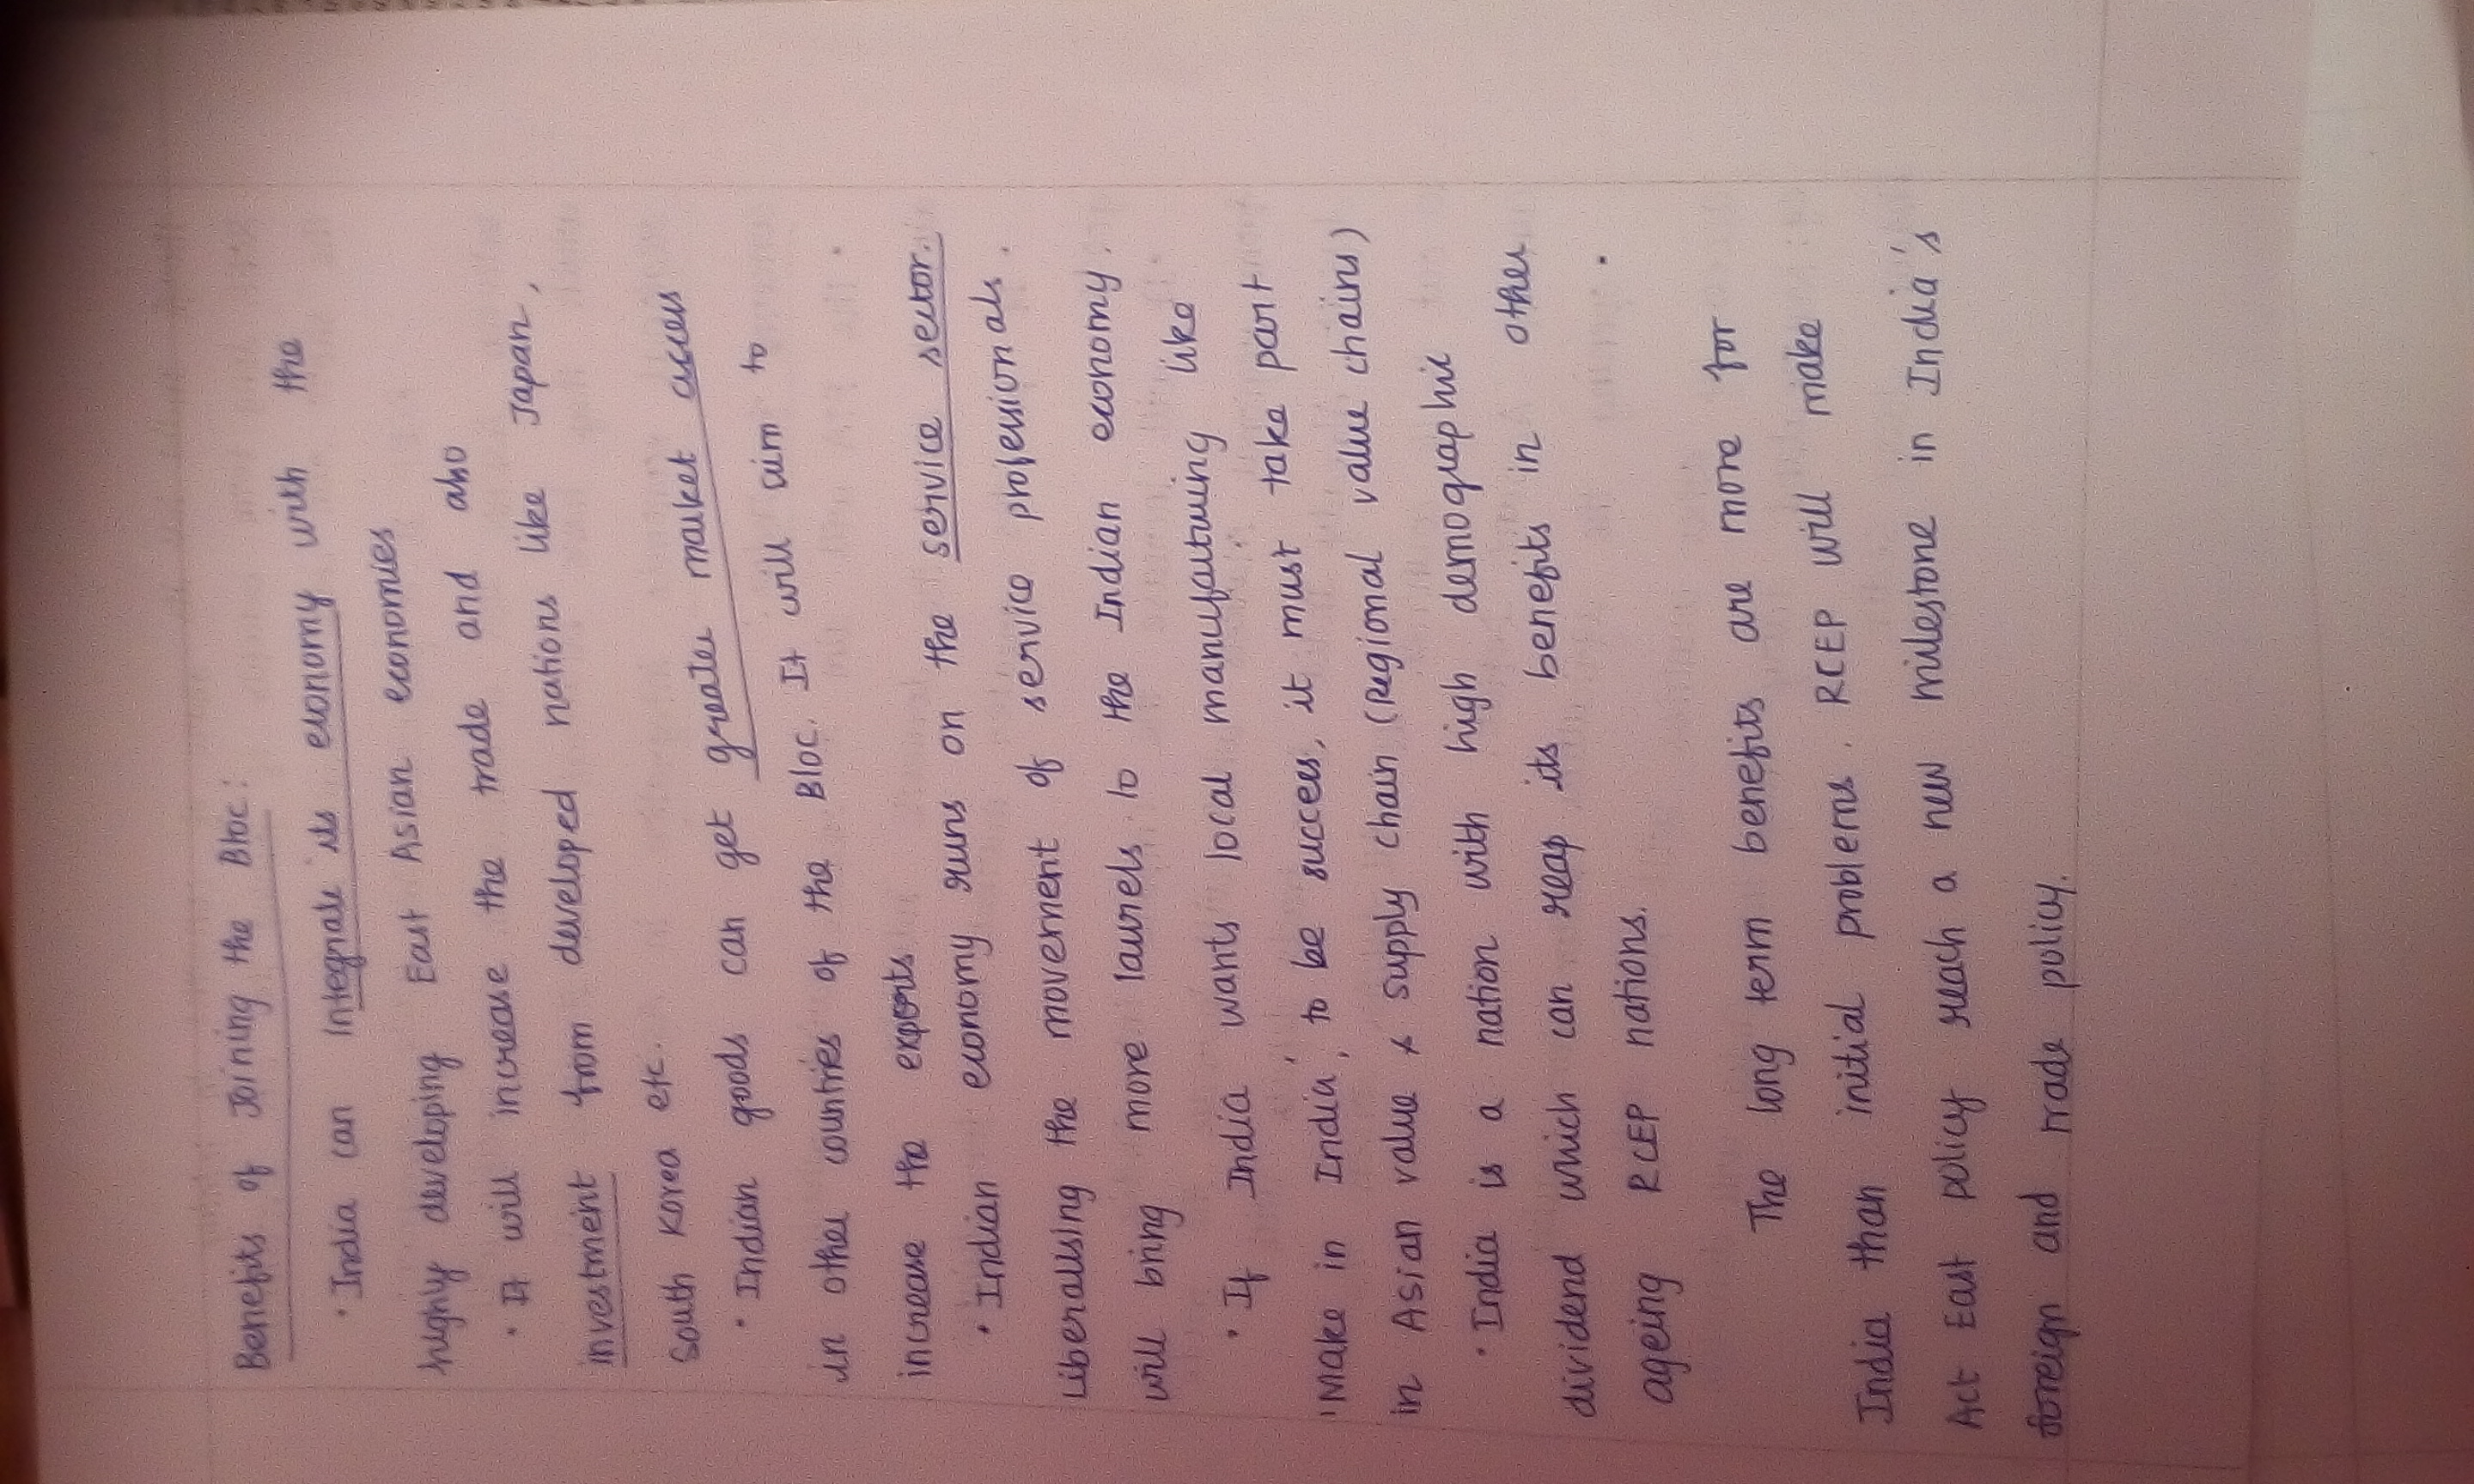 Benefits of Joining the Bloc:
• India can integrate its economy with the
highly developing East Asian economies
• It will increase the trade and also
investment from developed nations like Japan,
South Korea etc.
• Indian goods can get greater market access
in other countries of the Bloc. It will aim to
increase the exports
• Indian economy runs on the service sector.
Liberalising the movement of service professionals.
will bring more laurels to the Indian economy.
• If India wants local manufacturing like
'Make in India', to be success, it must take part
in Asian value & supply chain (Regional value chains)
• India is a nation with high demographic
dividend which can reap its benefits in other
ageing RCEP nations.
The long term benefits are more for
India than initial problems. RCEP will make
Act East policy reach a new milestone in India's
foreign and trade policy.